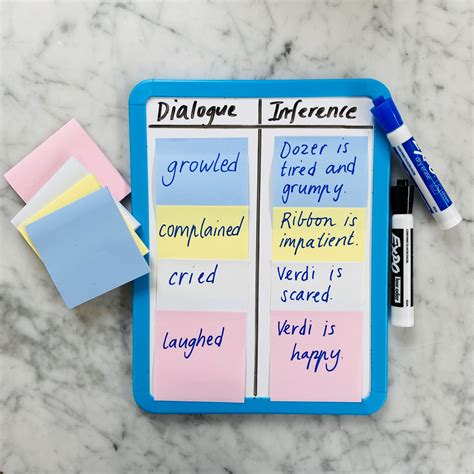 Dialogue Inference
growled
Dozer is
tired and
grumpy.
complained
Ribbon is
impatient.
cried
Verdi is
scared.
laughed
Verdi is
happy.
EXPO